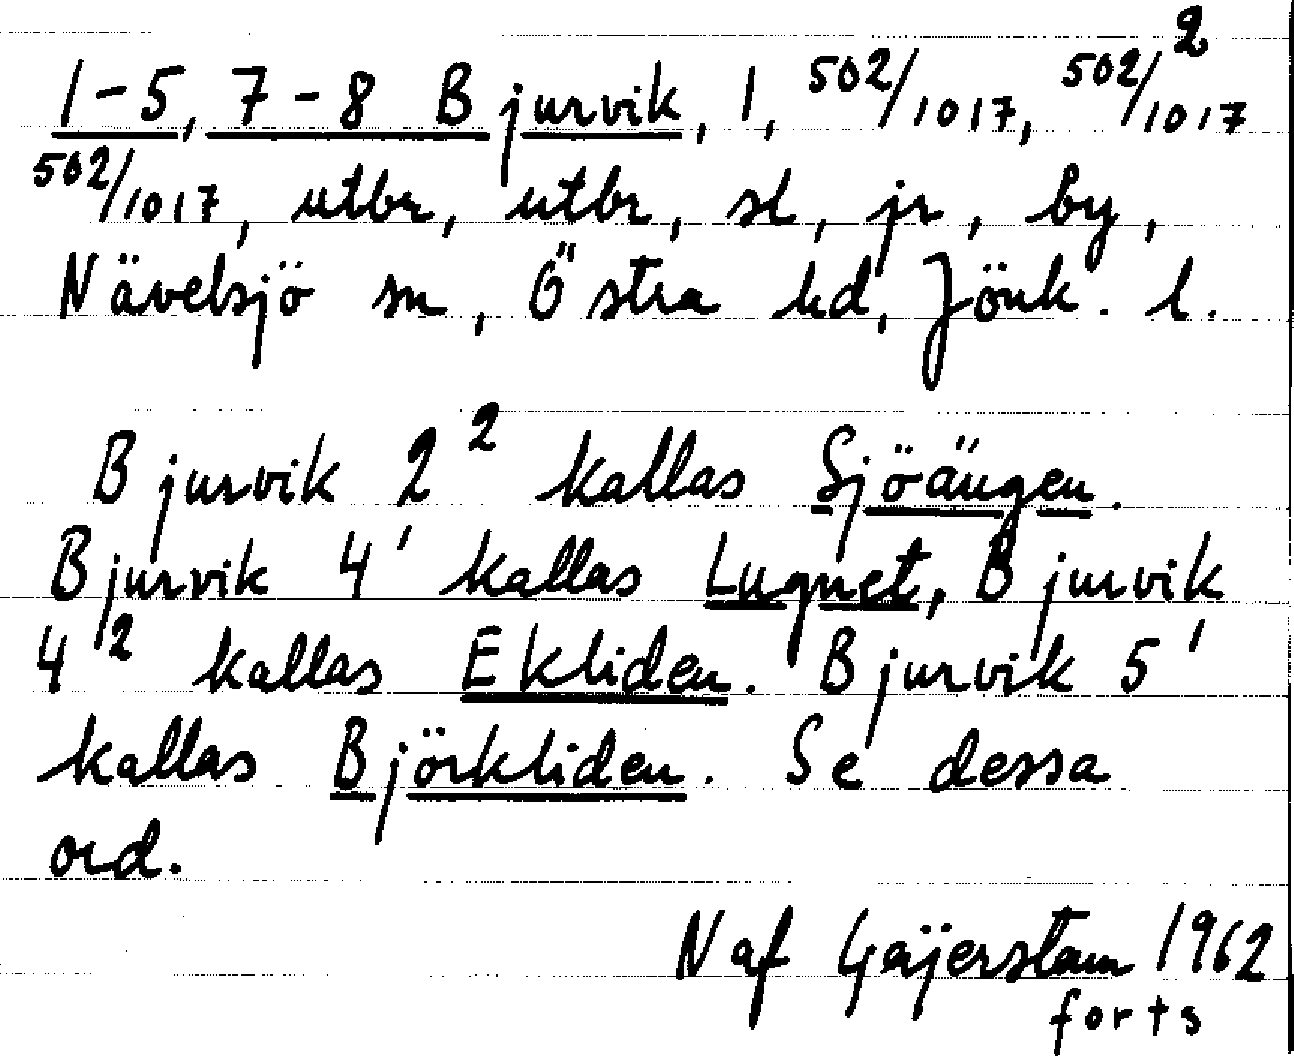 1-5, 7-8 Bjurvik, 1, 502/1017, 502/1017²
502/1017, utbr, utbr, sl, jr, by,
Nävelsjö sn, Östra hd, Jönk. l.
Bjurvik 2² kallas Sjöängen.
Bjurvik 4¹ kallas Lugnet, Bjurvik
4² kallas Ekliden. Bjurvik 5¹
kallas Björkliden. Se dessa
ord.
N af Geijerstam 1962
forts